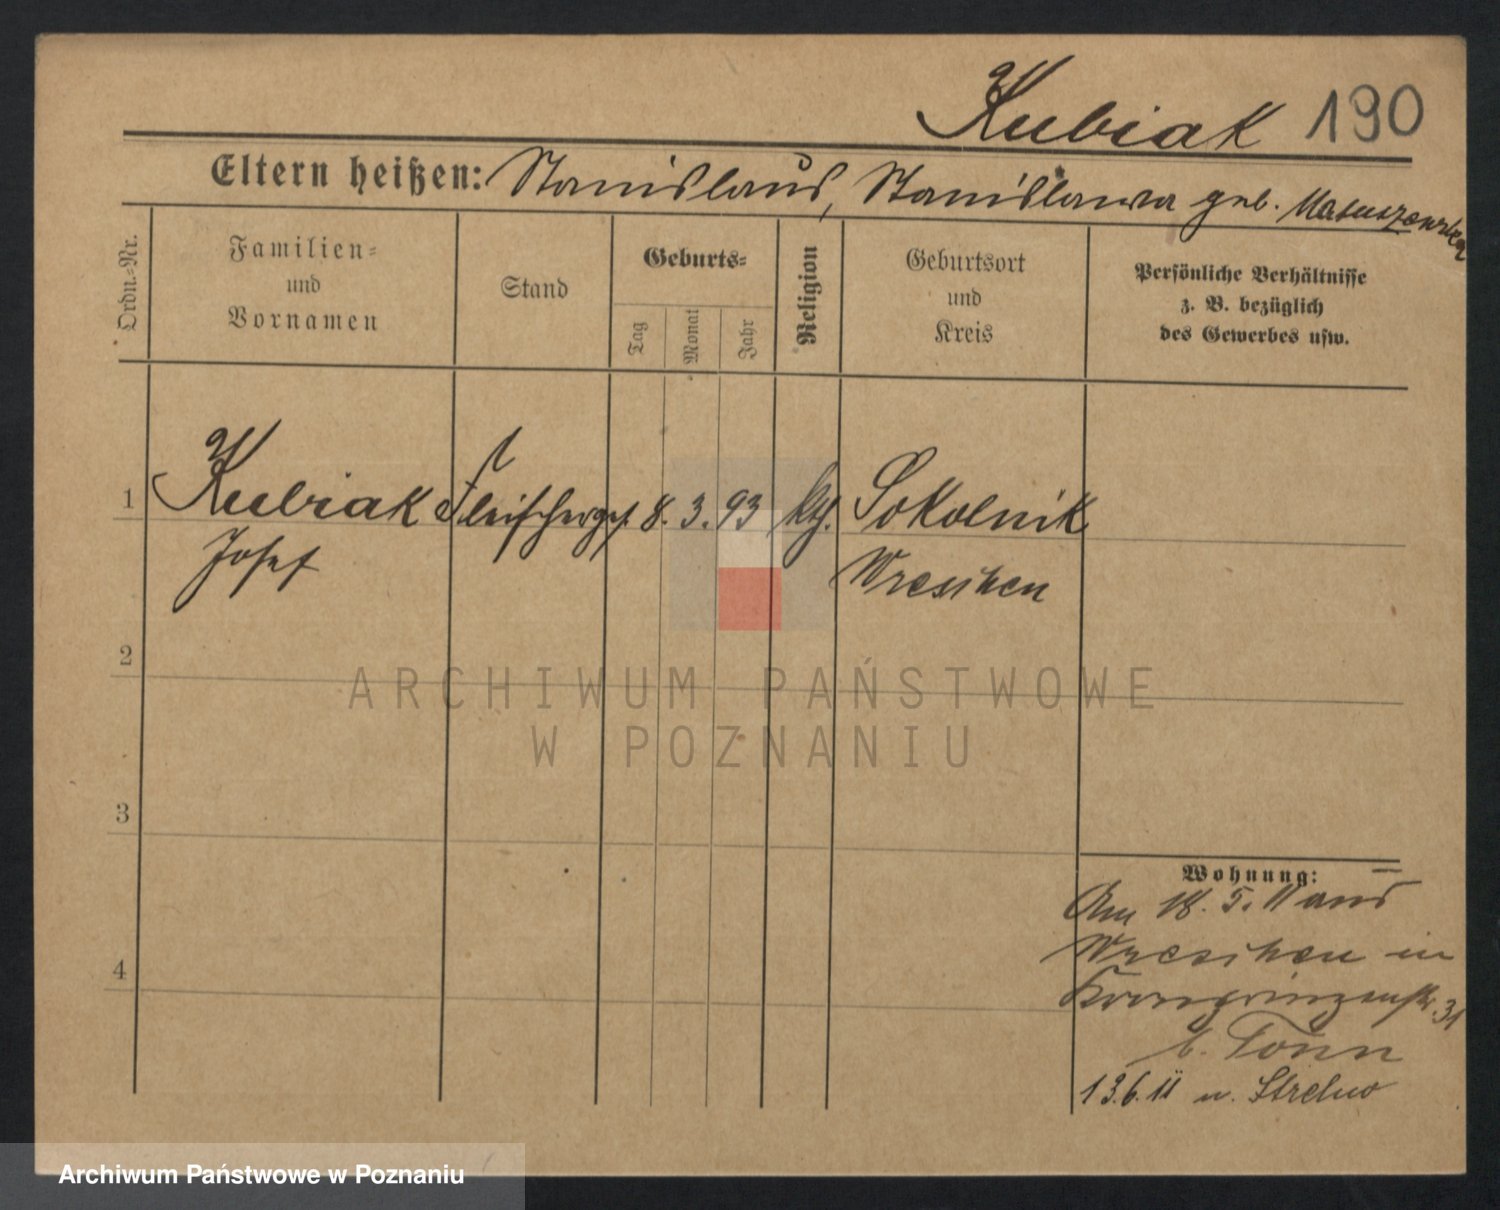 Kubiak 190
Eltern heißen: Stanislaus, Stanislawa geb.
Ordn.-Nr.
Familien-
und
Vornamen
Stand
Geburts-
Tag
Monat
Jahr
Religion
Geburtsort
und
Kreis
Persönliche Verhältnisse
z. B. bezüglich
des Gewerbes usw.
1 Kubiak Fleischerges. 8. 3. 93 kth. Sokolnik
Josef Wreschen
2
3
4
Wohnung:
Am 18. 5. 11 aus
Wreschen in
Kronprinzenstr. 31
b. Tonn
13.6.11 n. Strelno
ARCHIWUM PAŃSTWOWE
W POZNANIU
Archiwum Państwowe w Poznaniu